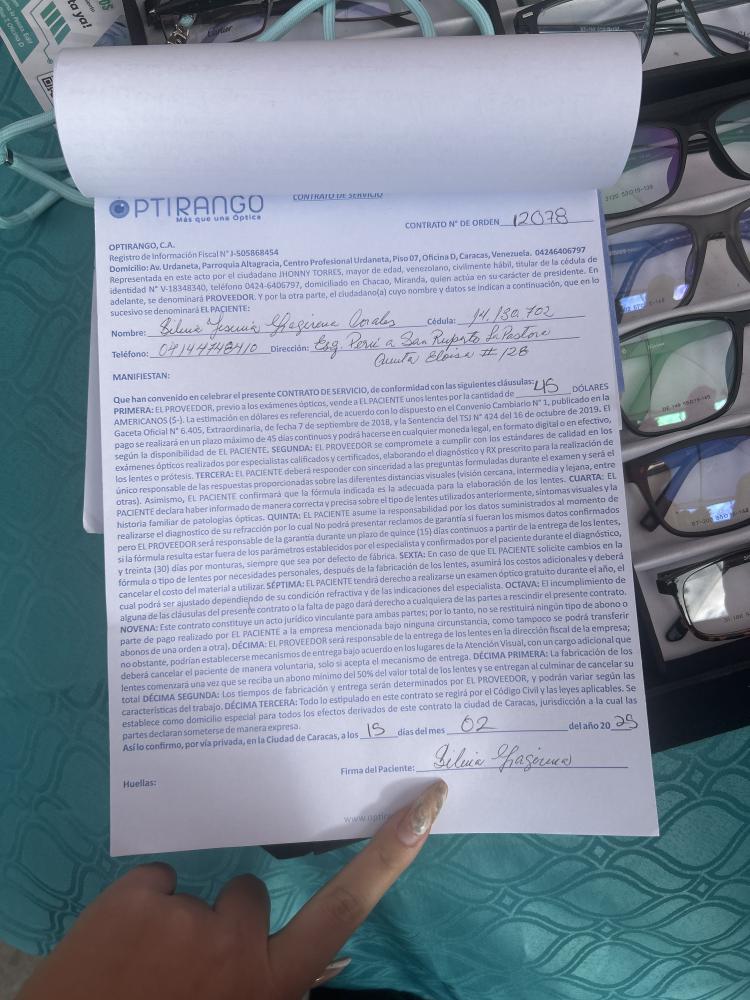 ta ya!
CONTRATO DE SERVICIO
OPTIRANGO
Más que una Óptica
CONTRATO N° DE ORDEN 12078
OPTIRANGO, C.A.
Registro de Información Fiscal N° J-505868454
Domicilio: Av. Urdaneta, Parroquia Altagracia, Centro Profesional Urdaneta, Piso 07, Oficina D, Caracas, Venezuela. 04246406797
Representada en este acto por el ciudadano JHONNY TORRES, mayor de edad, venezolano, civilmente hábil, titular de la cédula de
identidad N° V-18348340, teléfono 0424-6406797, domiciliado en Chacao, Miranda, quien actúa en su carácter de presidente. En
adelante, se denominará PROVEEDOR. Y por la otra parte, el ciudadano(a) cuyo nombre y datos se indican a continuación, que en lo
sucesivo se denominará EL PACIENTE:
Nombre: Silvia Yesenia Cédula: 14.130.702
Teléfono: 04144748410 Dirección: Esq. Perú a San Ruperto La Pastora
Quinta Eloisa # 128
MANIFIESTAN:
Que han convenido en celebrar el presente CONTRATO DE SERVICIO, de conformidad con las siguientes cláusulas:
PRIMERA: EL PROVEEDOR, previo a los exámenes ópticos, vende a EL PACIENTE unos lentes por la cantidad de 45 DÓLARES
AMERICANOS ($-). La estimación en dólares es referencial, de acuerdo con lo dispuesto en el Convenio Cambiario N° 1, publicado en la
Gaceta Oficial N° 6.405, Extraordinaria, de fecha 7 de septiembre de 2018, y la Sentencia del TSJ N° 424 del 16 de octubre de 2019. El
pago se realizará en un plazo máximo de 45 días continuos y podrá hacerse en cualquier moneda legal, en formato digital o en efectivo,
según la disponibilidad de EL PACIENTE. SEGUNDA: EL PROVEEDOR se compromete a cumplir con los estándares de calidad en los
exámenes ópticos realizados por especialistas calificados y certificados, elaborando el diagnóstico y RX prescrito para la realización de
los lentes o prótesis. TERCERA: EL PACIENTE deberá responder con sinceridad a las preguntas formuladas durante el examen y será el
único responsable de las respuestas proporcionadas sobre las diferentes distancias visuales (visión cercana, intermedia y lejana, entre
otras). Asimismo, EL PACIENTE confirmará que la fórmula indicada es la adecuada para la elaboración de los lentes. CUARTA: EL
PACIENTE declara haber informado de manera correcta y precisa sobre el tipo de lentes utilizados anteriormente, síntomas visuales y la
historia familiar de patologías ópticas. QUINTA: EL PACIENTE asume la responsabilidad por los datos suministrados al momento de
realizarse el diagnostico de su refracción por lo cual No podrá presentar reclamos de garantía si fueran los mismos datos confirmados
pero EL PROVEEDOR será responsable de la garantía durante un plazo de quince (15) días continuos a partir de la entrega de los lentes,
y treinta (30) días por monturas, siempre que sea por defecto de fábrica.
si la fórmula resulta estar fuera de los parámetros establecidos por el especialista y confirmados por el paciente durante el diagnóstico,
SEXTA: En caso de que EL PACIENTE solicite cambios en la
fórmula o tipo de lentes por necesidades personales, después de la fabricación de los lentes, asumirá los costos adicionales y deberá
cancelar el costo del material a utilizar. SÉPTIMA: EL PACIENTE tendrá derecho a realizarse un examen óptico gratuito durante el año, el
cual podrá ser ajustado dependiendo de su condición refractiva y de las indicaciones del especialista. OCTAVA: El incumplimiento de
alguna de las cláusulas del presente contrato o la falta de pago dará derecho a cualquiera de las partes a rescindir el presente contrato.
NOVENA: Este contrato constituye un acto jurídico vinculante para ambas partes; por lo tanto, no se restituirá ningún tipo de abono o
parte de pago realizado por EL PACIENTE a la empresa mencionada bajo ninguna circunstancia, como tampoco se podrá transferir
abonos de una orden a otra). DÉCIMA: EL PROVEEDOR será responsable de la entrega de los lentes en la dirección fiscal de la empresa;
no obstante, podrían establecerse mecanismos de entrega bajo acuerdo en los lugares de la Atención Visual, con un cargo adicional que
deberá cancelar el paciente de manera voluntaria, solo si acepta el mecanismo de entrega. DÉCIMA PRIMERA: La fabricación de los
lentes comenzará una vez que se reciba un abono mínimo del 50% del valor total de los lentes y se entregan al culminar de cancelar su
total DÉCIMA SEGUNDA: Los tiempos de fabricación y entrega serán determinados por EL PROVEEDOR, y podrán variar según las
características del trabajo. DÉCIMA TERCERA: Todo lo estipulado en este contrato se regirá por el Código Civil y las leyes aplicables. Se
establece como domicilio especial para todos los efectos derivados de este contrato la ciudad de Caracas, jurisdicción a la cual las
partes declaran someterse de manera expresa.
Así lo confirmo, por vía privada, en la Ciudad de Caracas, a los 15 días del mes 02 del año 20 25
Firma del Paciente: Silvia
Huellas: